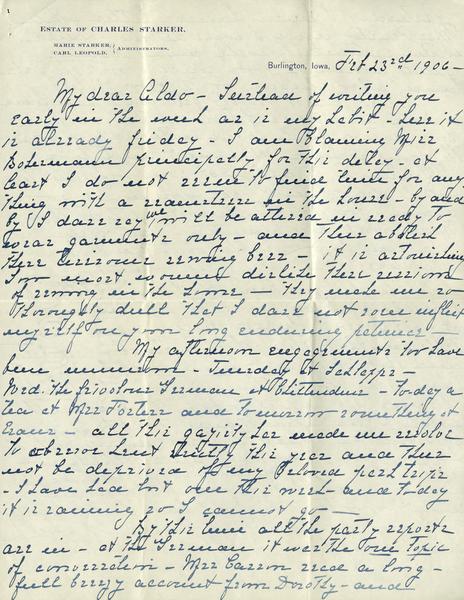 ESTATE OF CHARLES STARKER.
MARIE STARKER, } ADMINISTRATORS.
CARL LEOPOLD,
Burlington, Iowa, Feb 23rd 1906 -
My dear Aldo - Instead of writing you
early in the week as is my habit - here it
is already friday - I am blaming Miss
principally for this delay - at
least I do not seem to find time for any
thing with a seamstress in the house - by and
by I dare say we will be attired in ready to
wear garments only - and thus abolish
these tiresome sewing bees - it is astonishing
how most women dislike these sessions
of sewing in the home - they made me so
thoroughly dull that I dare not even inflict
myself on your long enduring patience -
My afternoon engagements too have
been numerous - Tuesday at
Wed. the frivolous German at Chittendens - To-day a
tea at Mrs Fosters and To morrow something at
- all this gayity has made me resolve
To observe Lent strictly this year and thus
not be deprived of my beloved park trips
- I have had but one this week - and To day
it is raining so I cannot go -
By this time all the party reports
are in - at the German it was the one topic
of conversation - Mrs Carson read a long -
full breezy account from Dorothy - and